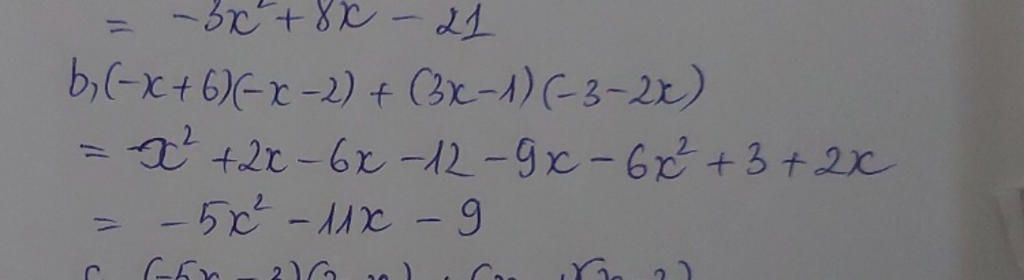 = -3x² + 8x - 21
b, (-x+6)(-x-2) + (3x-1)(-3-2x)
= x² + 2x - 6x - 12 - 9x - 6x² + 3 + 2x
= -5x² - 11x - 9